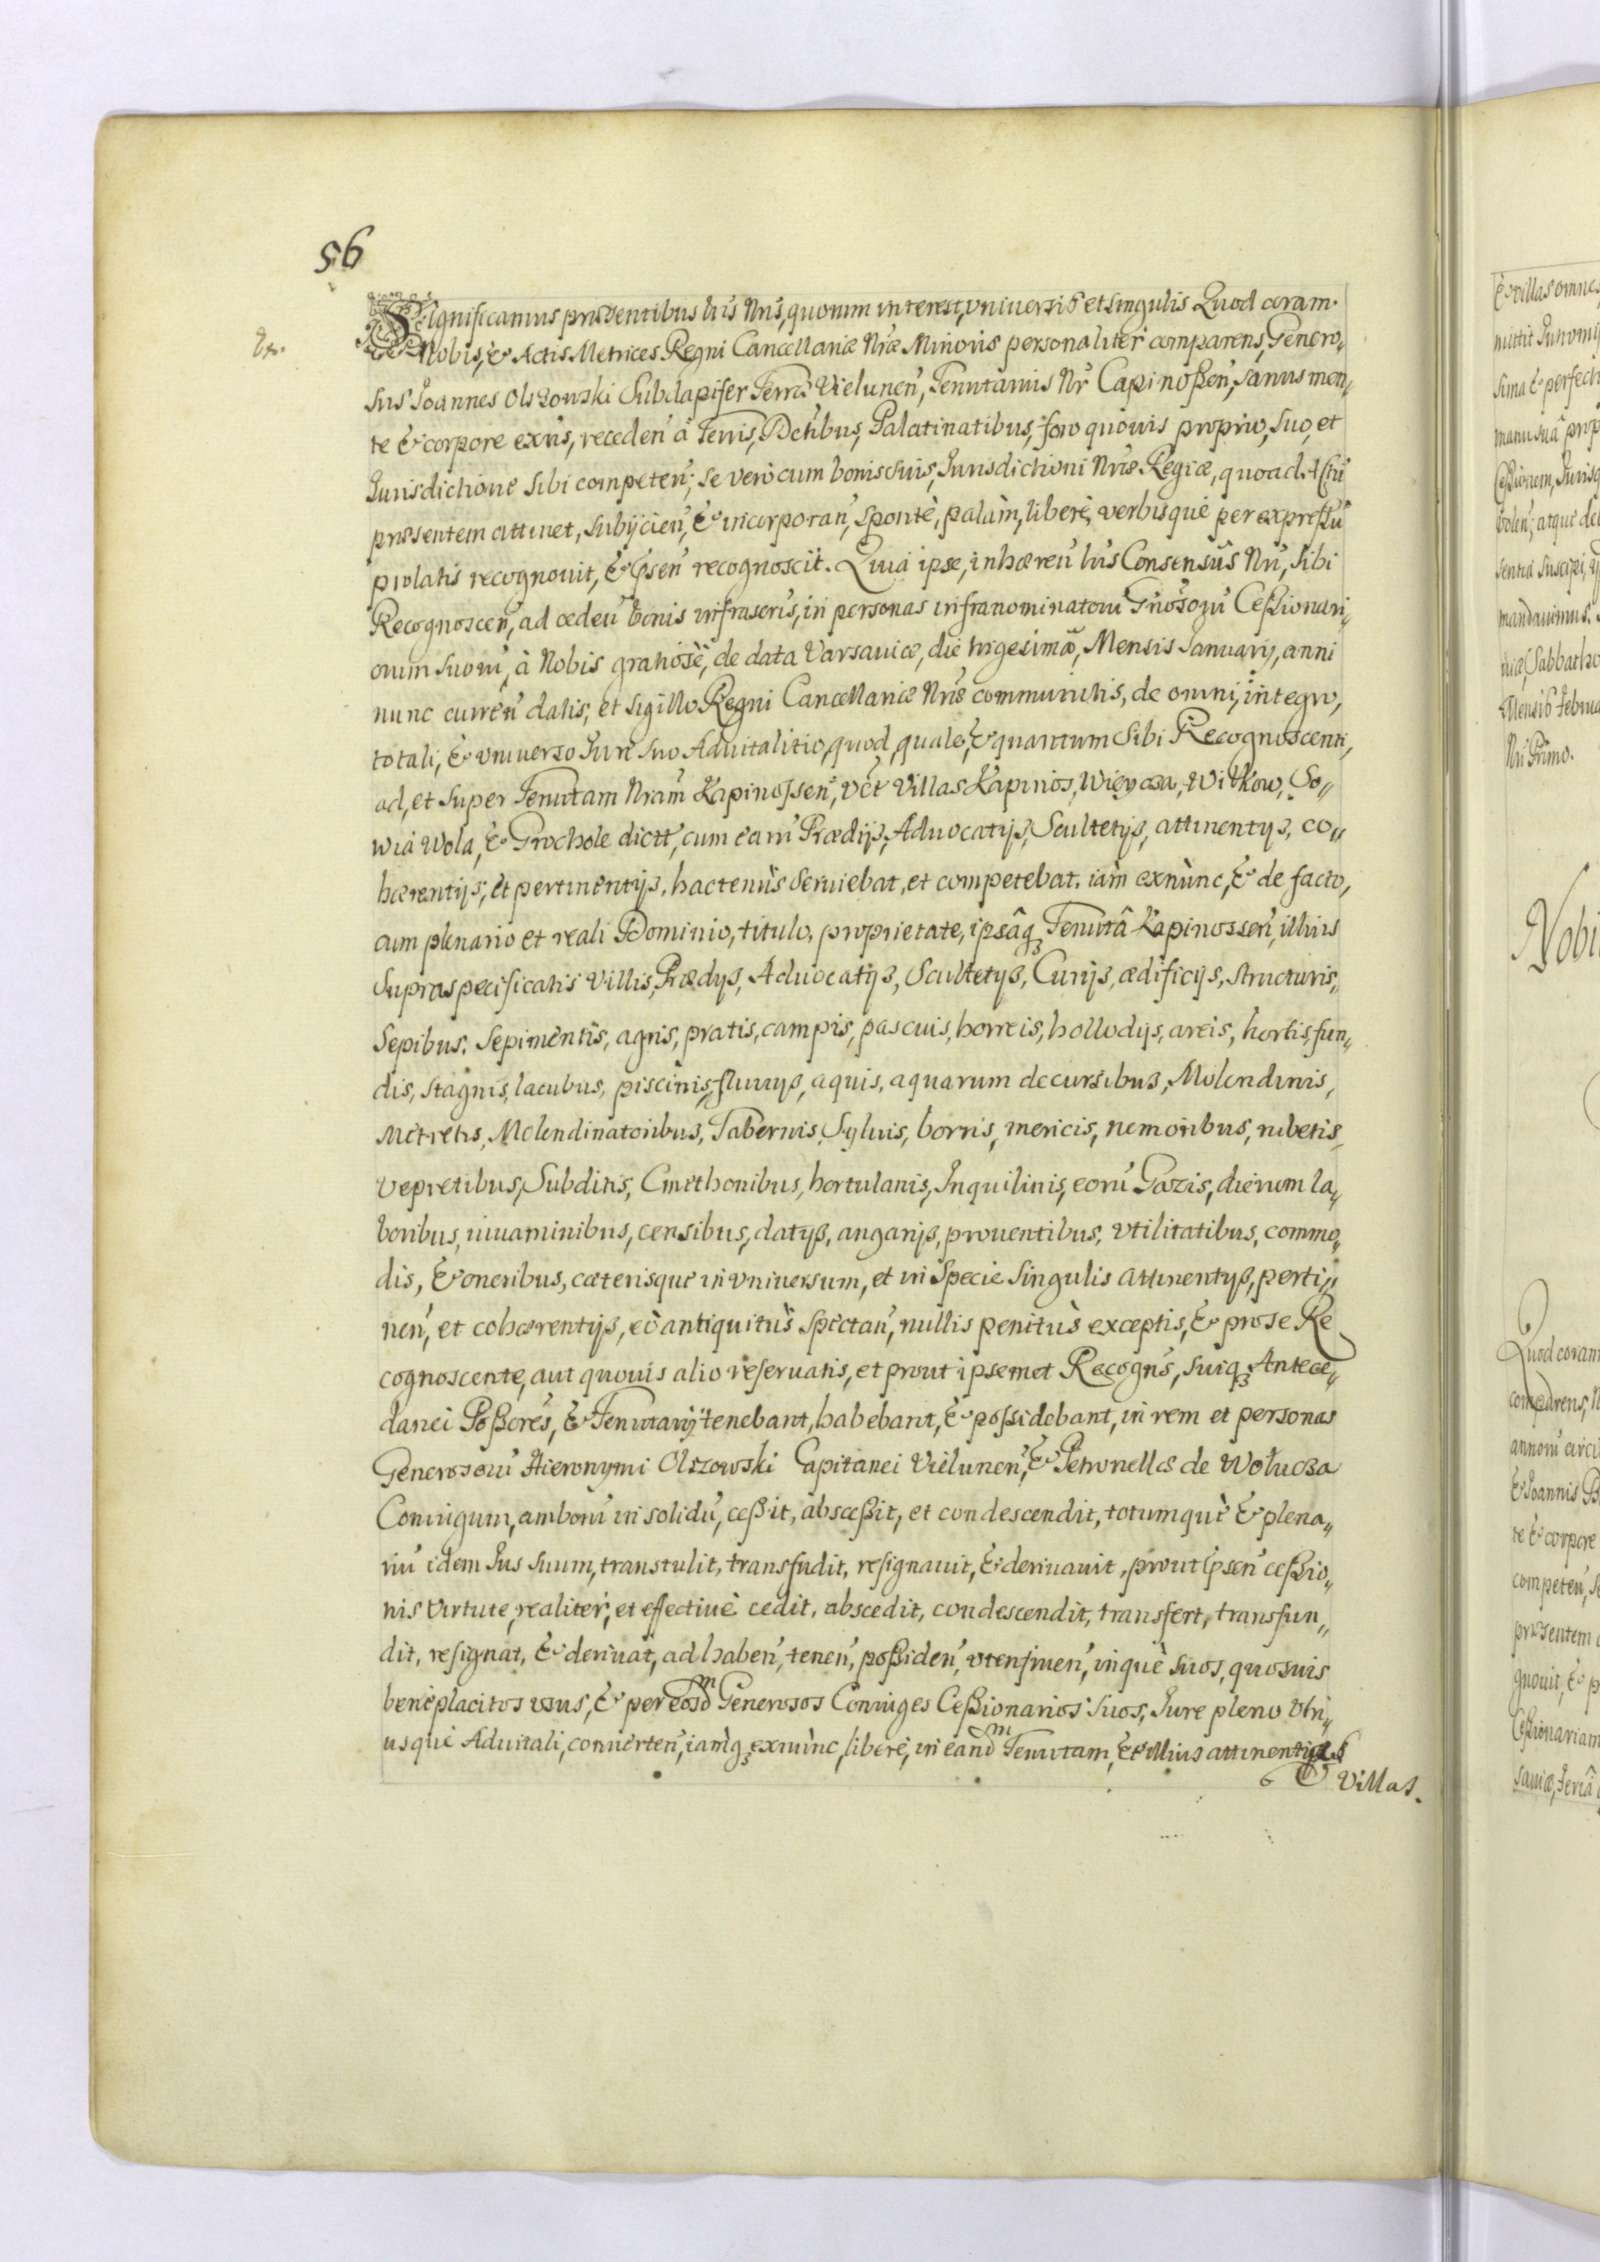 56
Significamus præsentibus lris Nris, quorum interest, vniuersis et singulis Quod coram
Nobis, & Actis Metrices Regni Cancellariæ Nræ Minoris personaliter comparens, Genero„
sus Joannes Olszowski Subdapifer Terræ Vielunen̄, Tenutarius Nr̄ Capinoßen̄, sanus men„
te & corpore exn̄s, receden̄ à Terris, Dctibus, Palatinatibus, foro quouis proprio, suo, et
Jurisdictione sibi competen̄; se verò cum bonis suis, Jurisdictioni Nræ Regiæ, quoad Actū
præsentem attinet, subijcien̄, & incorporan̄, spontè, palàm, liberè, verbisquè per expressū
prolatis recognouit, & p̄sen̄ recognoscit. Quia ipse, inhæren̄ lris Consensûs Nrī, sibi
Recognoscen̄, ad ceden̄ bonis infrascrīs, in personas infranominatorū Gnōsorū Ceßionari„
orum suorū, à Nobis gratiosè, de data Varsauiæ, die trigesimâ, Mensis Januarij, anni
nunc curren̄ datis, et sigillo Regni Cancellariæ Nræ communitis, de omni, integro,
totali, & vniuerso Jure suo Aduitalitio, quod, quale, & quantum sibi Recognoscenti,
ad, et super Tenutam Nram̄ Kapinossen̄, vc̄t Villas Kapinos, Wieycza, Witkow, So„
wia Wola, & Grochole dictt̄, cum earū Prædijs, Aduocatijs, Scultetijs, attinentijs, co„
hærentijs, et pertinentijs, hactenùs seruiebat, et competebat, iàm exnùnc, & de facto,
cum plenario et reali Dominio, titulo, proprietate, ipsâqȝ Tenutâ Kapinossen̄, illius
supraspecificatis Villis, Prædijs, Aduocatijs, Scultetijs, Curijs, ædificijs, structuris,
Sepibus, Sepimentis, agris, pratis, campis, pascuis, horreis, hollodijs, areis, hortis, fun„
dis, stagnis, lacubus, piscinis, fluuijs, aquis, aquarum decursibus, Molendinis,
Metretis, Molendinatoribus, Tabernis, Syluis, borris, mericis, nemoribus, rubetis,
vepretibus, Subditis, Cmethonibus, hortulanis, Inquilinis, eorū Gazis, dierum la„
boribus, iuuaminibus, censibus, datijs, angarijs, prouentibus, vtilitatibus, commo„
dis, & oneribus, cæterisque in vniuersum, et in Specie singulis attinentijs, perti„
nen̄, et cohærentijs, eò antiquitùs spectan̄, nullis penitùs exceptis, & pro se Re
cognoscente, aut quouis alio reseruatis, et prout ipsemet Recogn̄s, suiqȝ Antece„
danei Poßorēs, & Tenutarij tenebant, habebant, & possidebant, in rem et personas
Generosorū Hieronymi Olszowski Capitanei Vielunen̄, & Petronellæ de Wołucza
Coniugum, amborū in solidū, ceßit, absceßit, et condescendit, totumquè & plena„
riū idem Jus suum, transtulit, transfudit, resignauit, & deriuauit, prout p̄sen̄ ceßio„
nis virtute, realiter, et effectiuè cedit, abscedit, condescendit, transfert, transfun„
dit, resignat, & deriuat, ad haben̄, tenen̄, poßiden̄, vtenfruen̄, inquè suos, quosuis
beneplacitos vsus, & per eosdm Generosos Coniuges Ceßionarios suos, Jure pleno vtri„
usque Aduitali, conuerten̄, iamqȝ exnùnc, liberè, in eandm Tenutam, & illius attinentijs
& Villas.